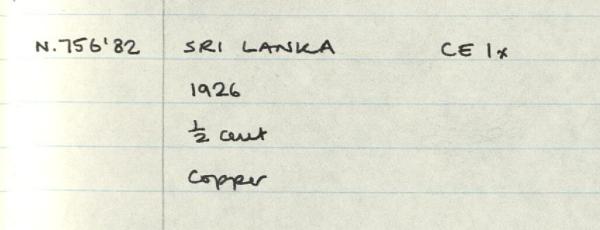 N.756'82 SRI LANKA CE 1x
1926
½ cent
Copper